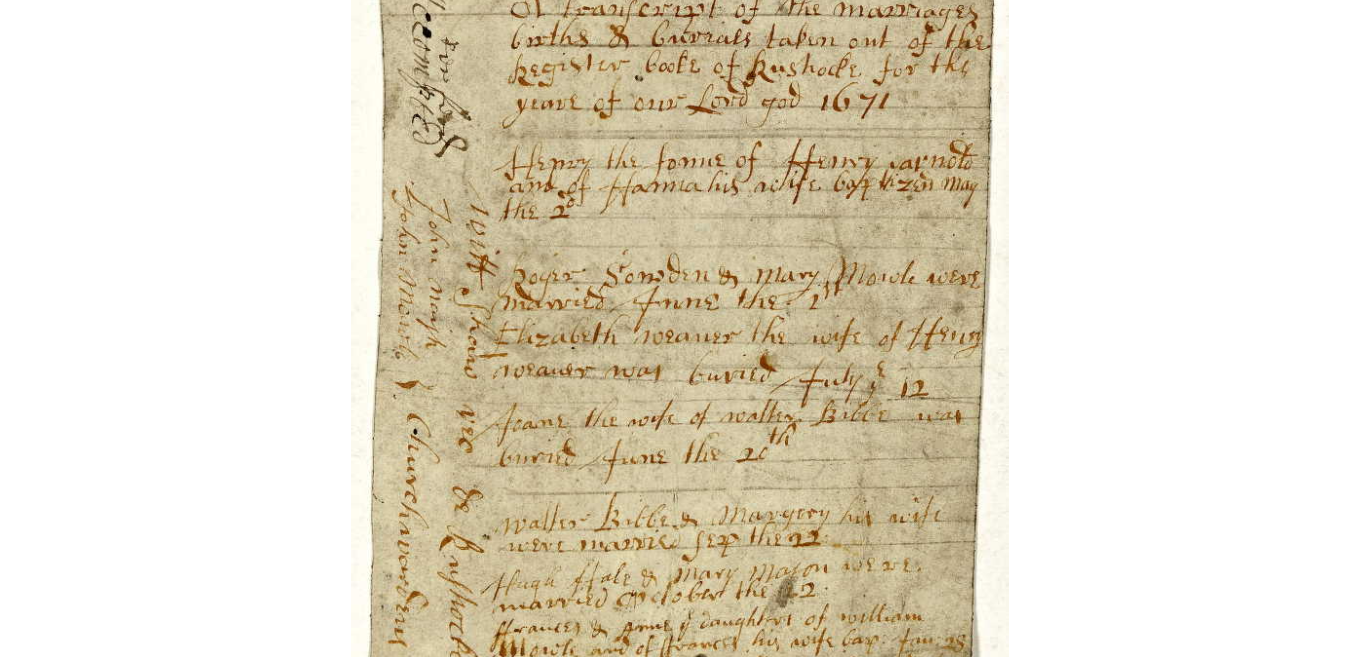 A transcript of the marriages
births & burials taken out of the
Register booke of Rushocke for the
yeare of our Lord god 1671
Henry the sonne of Henry
and of Hanna his wife baptized may
the 2d
Roger Sowden & Mary Mowle were
married June the 1st
Elizabeth weaver the wife of Henry
weaver was buried July ye 12
Joane the wife of walter Bibbe was
buried June the 20th
walter Bibbe & Margery his wife
were married sep the 22
Hugh Hale & Mary Mason were
married October the 12
ffrances & Anne ye daughters of william
Mowle and of frances his wife bap: Jan: 28
Will Shaw rec de Rushock
John Nash
John Mowle
Churchwardens